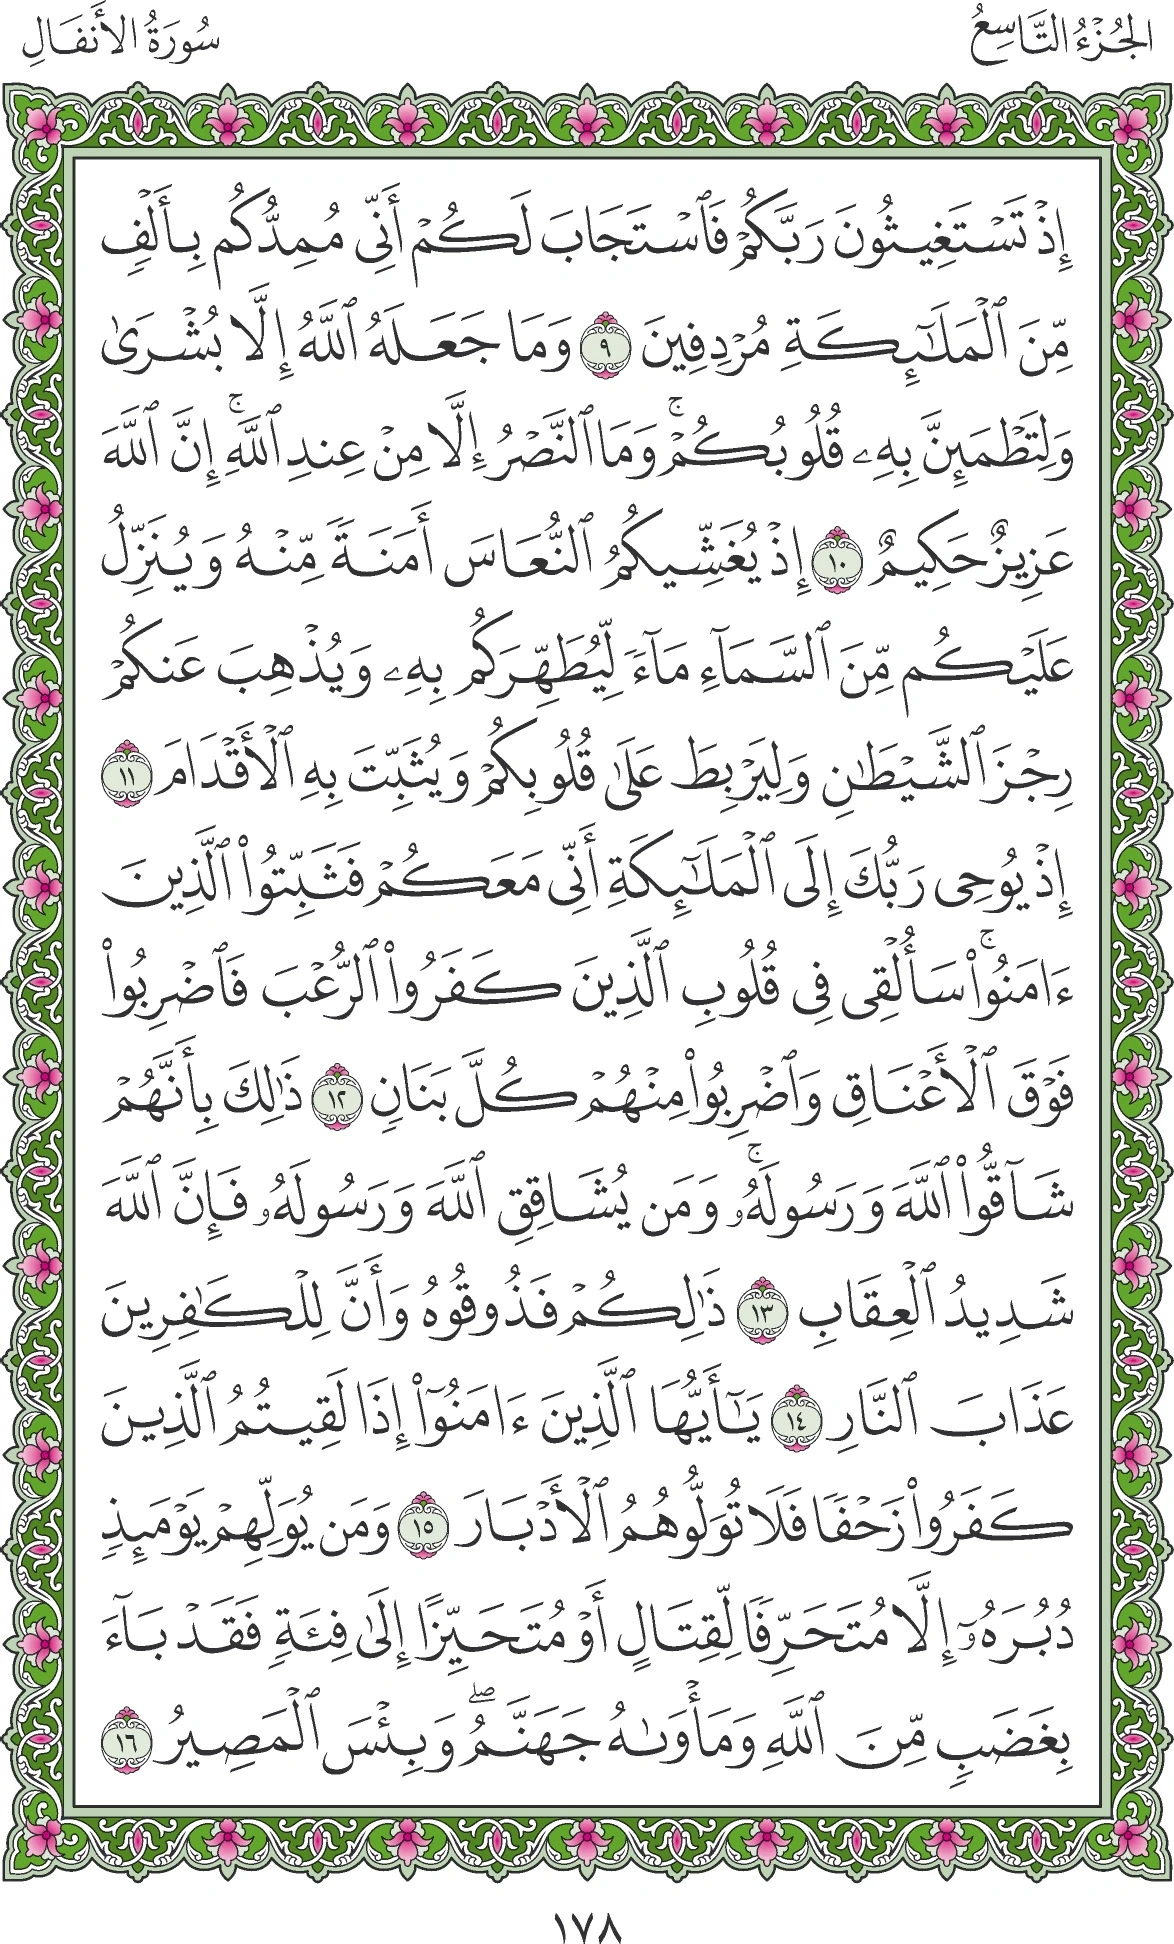 الجُزْءُ التَّاسِعُ
سُورَةُ الأَنفَالِ
إِذۡ تَسۡتَغِيثُونَ رَبَّكُمۡ فَٱسۡتَجَابَ لَكُمۡ أَنِّي مُمِدُّكُم بِأَلۡفٖ
مِّنَ ٱلۡمَلَـٰٓئِكَةِ مُرۡدِفِينَ ٩ وَمَا جَعَلَهُ ٱللَّهُ إِلَّا بُشۡرَىٰ
وَلِتَطۡمَئِنَّ بِهِۦ قُلُوبُكُمۡۚ وَمَا ٱلنَّصۡرُ إِلَّا مِنۡ عِندِ ٱللَّهِۚ إِنَّ ٱللَّهَ
عَزِيزٌ حَكِيمٌ ١٠ إِذۡ يُغَشِّيكُمُ ٱلنُّعَاسَ أَمَنَةٗ مِّنۡهُ وَيُنَزِّلُ
عَلَيۡكُم مِّنَ ٱلسَّمَآءِ مَآءٗ لِّيُطَهِّرَكُم بِهِۦ وَيُذۡهِبَ عَنكُمۡ
رِجۡزَ ٱلشَّيۡطَٰنِ وَلِيَرۡبِطَ عَلَىٰ قُلُوبِكُمۡ وَيُثَبِّتَ بِهِ ٱلۡأَقۡدَامَ ١١
إِذۡ يُوحِي رَبُّكَ إِلَى ٱلۡمَلَـٰٓئِكَةِ أَنِّي مَعَكُمۡ فَثَبِّتُواْ ٱلَّذِينَ
ءَامَنُواْۚ سَأُلۡقِي فِي قُلُوبِ ٱلَّذِينَ كَفَرُواْ ٱلرُّعۡبَ فَٱضۡرِبُواْ
فَوۡقَ ٱلۡأَعۡنَاقِ وَٱضۡرِبُواْ مِنۡهُمۡ كُلَّ بَنَانٖ ١٢ ذَٰلِكَ بِأَنَّهُمۡ
شَآقُّواْ ٱللَّهَ وَرَسُولَهُۥۚ وَمَن يُشَاقِقِ ٱللَّهَ وَرَسُولَهُۥ فَإِنَّ ٱللَّهَ
شَدِيدُ ٱلۡعِقَابِ ١٣ ذَٰلِكُمۡ فَذُوقُوهُ وَأَنَّ لِلۡكَٰفِرِينَ
عَذَابَ ٱلنَّارِ ١٤ يَـٰٓأَيُّهَا ٱلَّذِينَ ءَامَنُوٓاْ إِذَا لَقِيتُمُ ٱلَّذِينَ
كَفَرُواْ زَحۡفٗا فَلَا تُوَلُّوهُمُ ٱلۡأَدۡبَارَ ١٥ وَمَن يُوَلِّهِمۡ يَوۡمَئِذٖ
دُبُرَهُۥٓ إِلَّا مُتَحَرِّفٗا لِّقِتَالٍ أَوۡ مُتَحَيِّزًا إِلَىٰ فِئَةٖ فَقَدۡ بَآءَ
بِغَضَبٖ مِّنَ ٱللَّهِ وَمَأۡوَىٰهُ جَهَنَّمُۖ وَبِئۡسَ ٱلۡمَصِيرُ ١٦
١٧٨